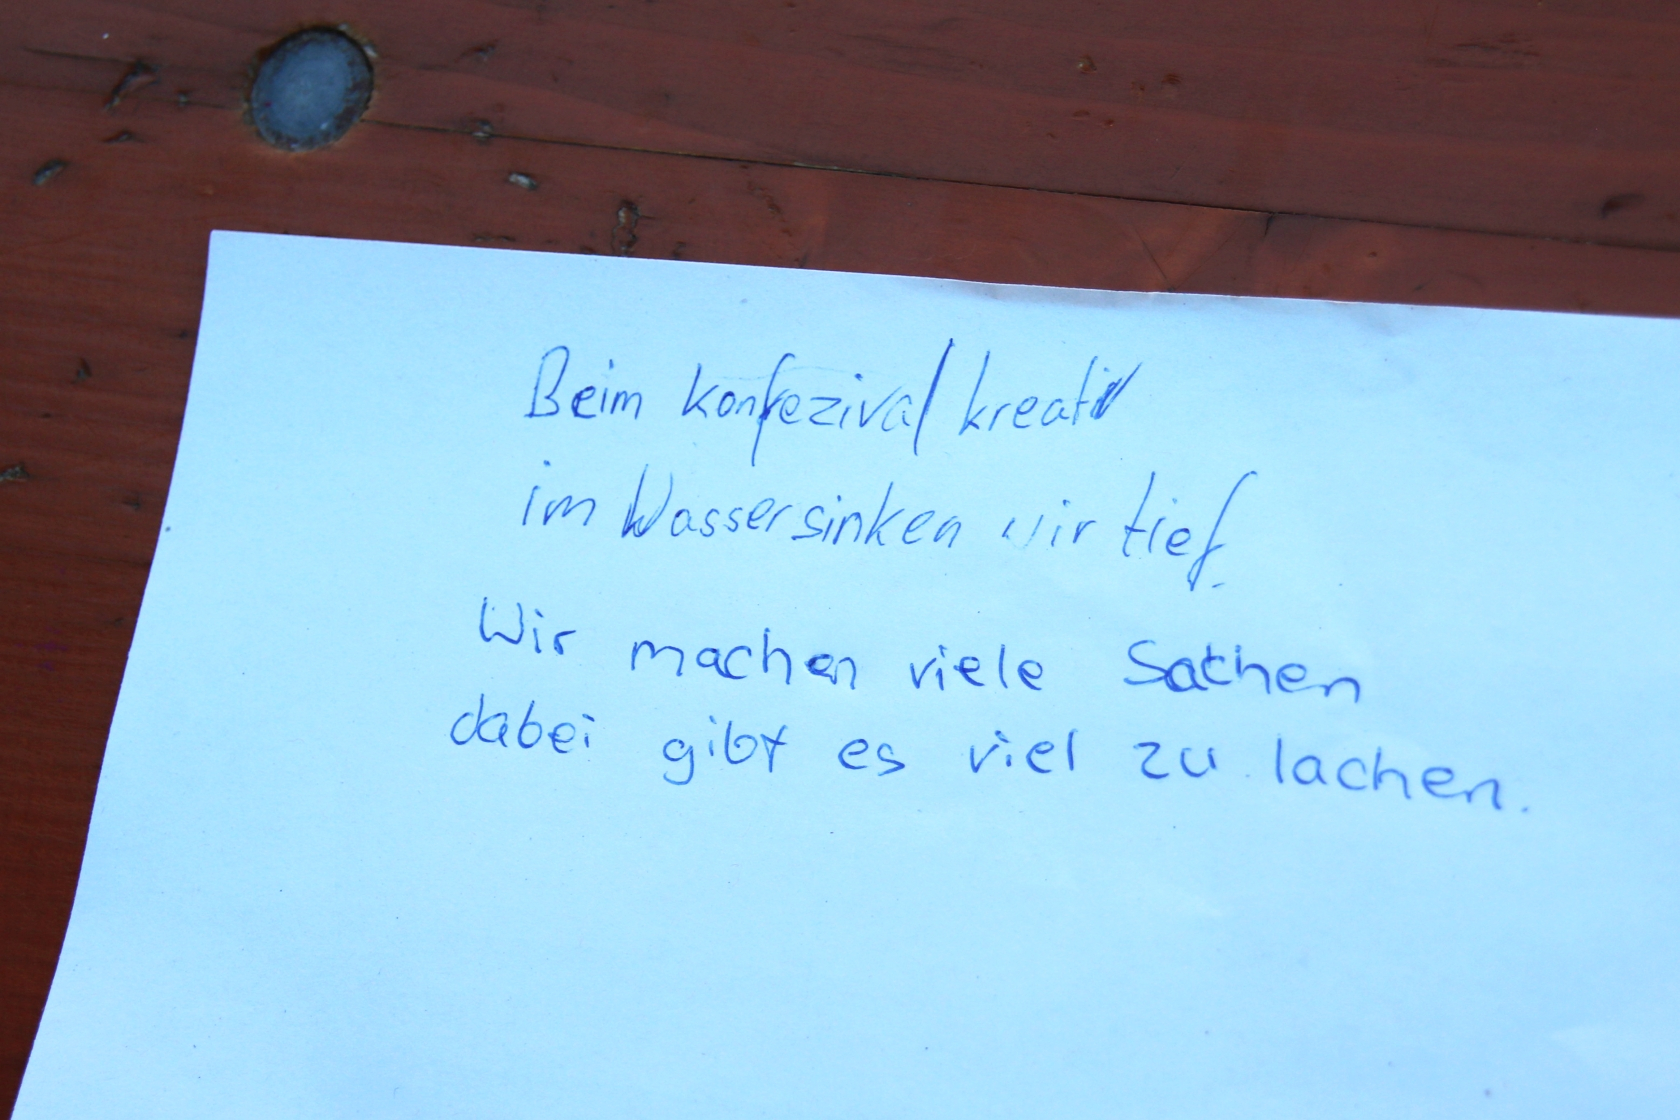 Beim Konfezival kreativ
im Wassersinken wir tief.
Wir machen viele Sachen
dabei gibt es viel zu lachen.